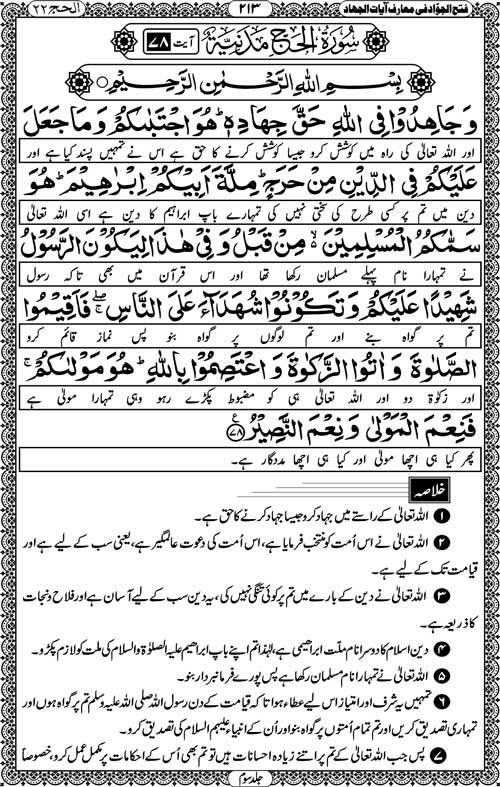 فتح الجوّاد فی معارف آیات الجھاد ۲۱۳ الحج ۲۲
سُورَةُ الْحَجِّ مَدَنِيَّةٌ آیت ۷۸
بِسْمِ اللهِ الرَّحْمٰنِ الرَّحِيْمِ
وَجَاهِدُوْا فِي اللهِ حَقَّ جِهَادِهٖ ؕ هُوَ اجْتَبٰىكُمْ وَمَا جَعَلَ
اور اللہ تعالیٰ کی راہ میں کوشش کرو جیسا کوشش کرنے کا حق ہے اس نے تمہیں پسند کیا ہے اور
عَلَيْكُمْ فِي الدِّيْنِ مِنْ حَرَجٍ ؕ مِلَّةَ اَبِيْكُمْ اِبْرٰهِيْمَ ؕ هُوَ
دین میں تم پر کسی طرح کی سختی نہیں کی تمہارے باپ ابراہیم کا دین ہے اسی اللہ تعالیٰ
سَمّٰىكُمُ الْمُسْلِمِيْنَ ۙ مِنْ قَبْلُ وَفِيْ هٰذَا لِيَكُوْنَ الرَّسُوْلُ
نے تمہارا نام پہلے مسلمان رکھا تھا اور اس قرآن میں بھی تاکہ رسول
شَهِيْدًا عَلَيْكُمْ وَتَكُوْنُوْا شُهَدَآءَ عَلَى النَّاسِ ۖۚ فَاَقِيْمُوا
تم پر گواہ بنے اور تم لوگوں پر گواہ بنو پس نماز قائم کرو
الصَّلٰوةَ وَاٰتُوا الزَّكٰوةَ وَاعْتَصِمُوْا بِاللهِ ؕ هُوَ مَوْلٰىكُمْ ۚ
اور زکوٰۃ دو اور اللہ تعالیٰ ہی کو مضبوط پکڑے رہو وہی تمہارا مولیٰ ہے
فَنِعْمَ الْمَوْلٰى وَنِعْمَ النَّصِيْرُ ۷۸ ع
پھر کیا ہی اچھا مولیٰ اور کیا ہی اچھا مددگار ہے۔
خلاصہ
۱ اللہ تعالیٰ کے راستے میں جہاد کرو جیسا جہاد کرنے کا حق ہے۔
۲ اللہ تعالیٰ نے اس اُمت کو منتخب فرمایا ہے، اس اُمت کی دعوت عالمگیر ہے، یعنی سب کے لیے ہے اور
قیامت تک کے لیے ہے۔
۳ اللہ تعالیٰ نے دین کے بارے میں تم پر کوئی تنگی نہیں کی، یہ دین سب کے لیے آسان ہے اور فلاح و نجات
کا ذریعہ ہے۔
۴ دین اسلام کا دوسرا نام ملّت ابراہیمی ہے، لہٰذا تم اپنے باپ ابراہیم علیہ الصلوٰۃ والسلام کی ملت کو لازم پکڑو۔
۵ اللہ تعالیٰ نے تمہارا نام مسلمان رکھا ہے پس پورے فرمانبردار بنو۔
۶ تمہیں یہ شرف اور امتیاز اس لیے عطاء ہوا تاکہ قیامت کے دن رسول اللہ صلی اللہ علیہ وسلم تم پر گواہ ہوں اور
تمہاری تصدیق کریں اور تم تمام اُمتوں پر گواہ بنو اور اُن کے انبیاء علیہم السلام کی تصدیق کرو۔
۷ پس جب اللہ تعالیٰ کے تم پر اتنے زیادہ احسانات ہیں تو تم بھی اُس کے احکامات پر مکمل عمل کرو، خصوصاً
جلد سوم